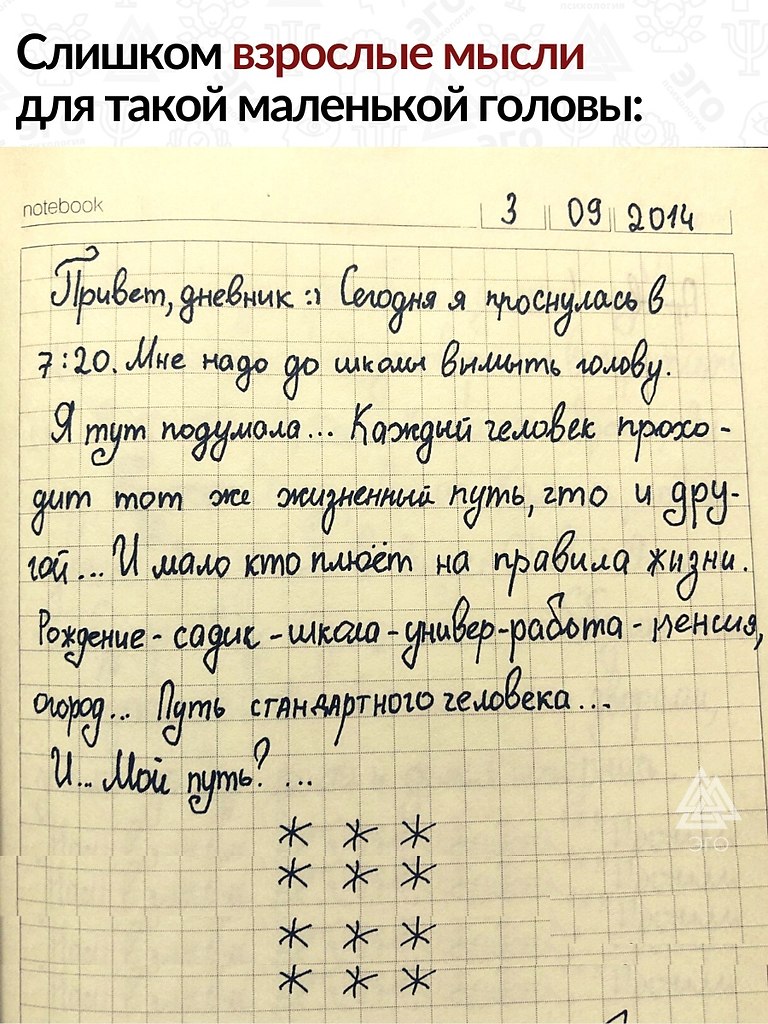 Слишком взрослые мысли
для такой маленькой головы:
notebook
3 09 2014
Привет, дневник :) Сегодня я проснулась в
7:20. Мне надо до школы вымыть голову.
Я тут подумала... Каждый человек прохо-
дит тот же жизненный путь, что и дру-
гой... И мало кто плюёт на правила жизни.
Рождение - садик - школа - универ - работа - пенсия,
огород... Путь стандартного человека...
И... Мой путь? ...
* * *
* * *
* * *
* * *
ЭГО